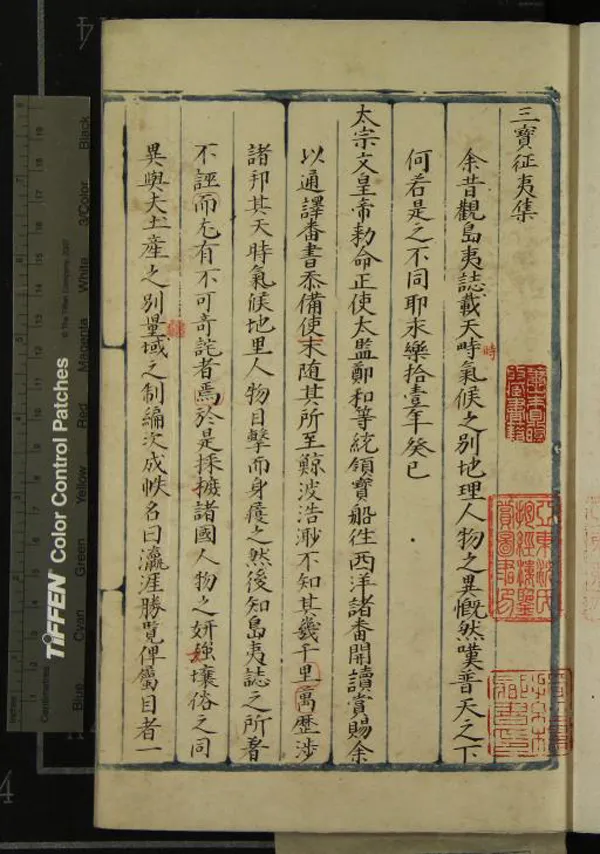 三寶征夷集
余昔觀島夷誌載天時氣候之別地理人物之異慨然嘆普天之下
時
何若是之不同耶永樂拾壹年癸巳
太宗文皇帝勑命正使太監鄭和等統領寶船徃西洋諸番開讀賞賜余
以通譯番書忝備使末随其所至鯨波浩渺不知其幾千里萬歷涉
諸邦其天時氣候地里人物目擊而身履之然後知島夷誌之所着
不誣而尤有不可奇詫者焉於是採摭諸國人物之妍強壤俗之同
異與夫土産之別量域之制編次成帙名曰瀛涯勝覽俾屬目者一
亞東沈氏抱經樓鑒賞圖書印
TIFFEN Color Control Patches
© The Tiffen Company, 2007
Blue Cyan Green Yellow Red Magenta White 3/Color Black
Inches
Centimetres
4
4